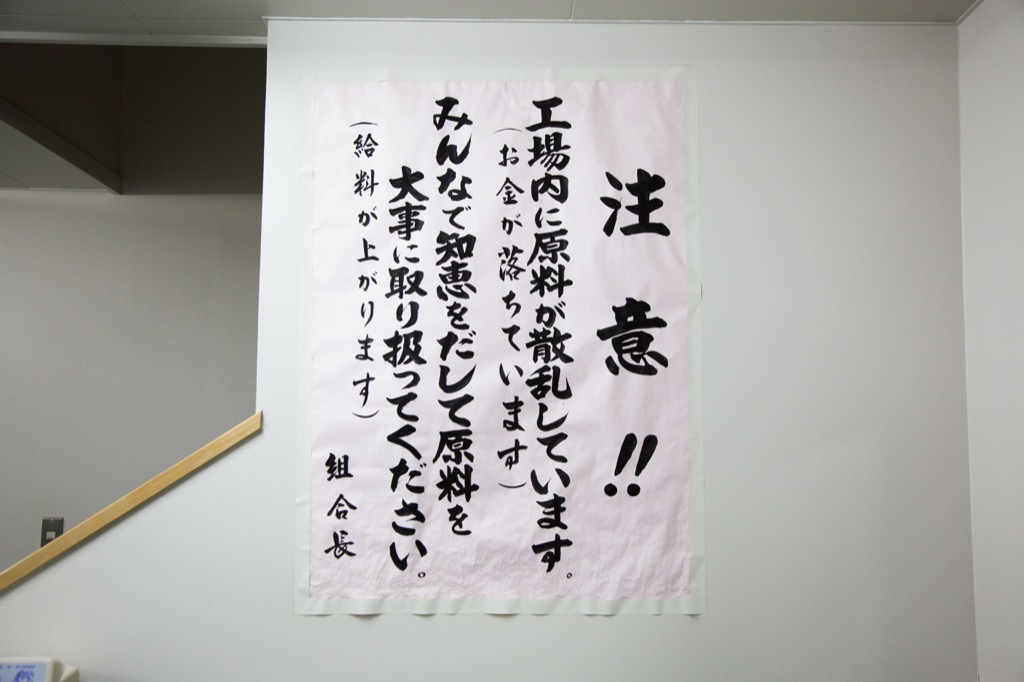 注意!!
工場内に原料が散乱しています。
(お金が落ちています)
みんなで知恵をだして原料を
大事に取り扱ってください。
(給料が上がります)
組合長